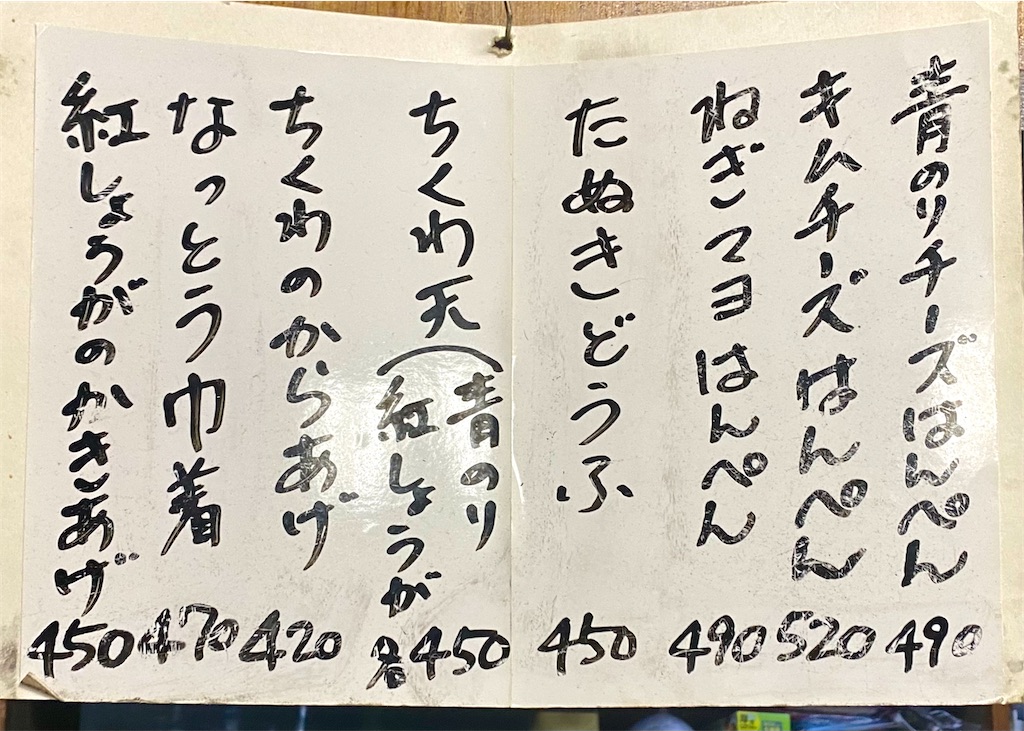 青のりチーズはんぺん 490
キムチーズはんぺん 520
ねぎマヨはんぺん 490
たぬきどうふ 450
ちくわ天(青のり
紅しょうが 各450
ちくわのからあげ 420
なっとう巾着 470
紅しょうがのかきあげ 450